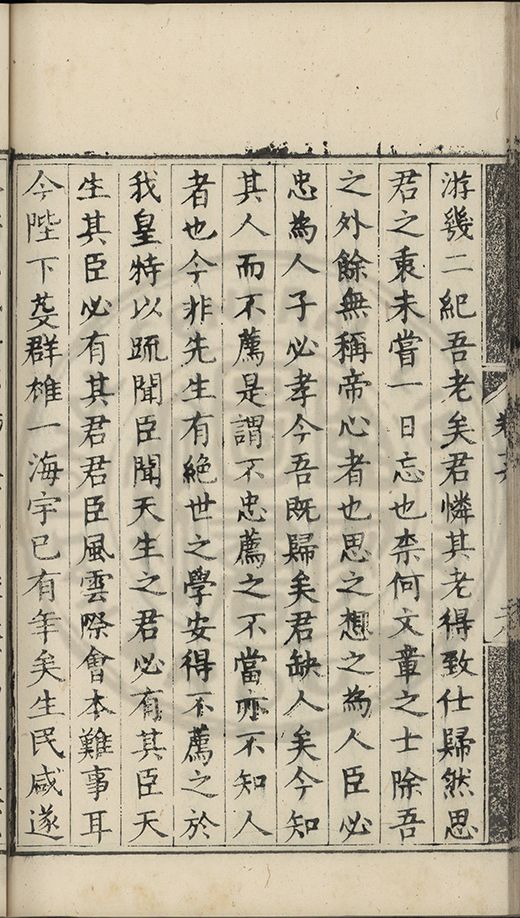 游幾二紀吾老矣君憐其老得致仕歸然思
君之衷未嘗一日忘也柰何文章之士除吾
之外餘無稱帝心者也思之想之為人臣必
忠為人子必孝今吾既歸矣君缺人矣今知
其人而不薦是謂不忠薦之不當亦不知人
者也今非先生有絕世之學安得不薦之於
我皇特以疏聞臣聞天生之君必有其臣天
生其臣必有其君君臣風雲際會本難事耳
今陛下芟群雄一海宇已有年矣生民咸遂